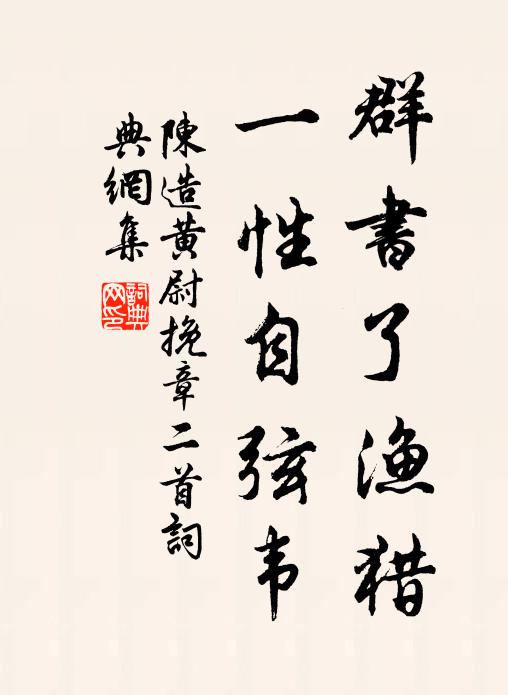 群書了渔猎
一性自弦韦
陳造黄尉挽章二首詞
典網集
詞典
网印